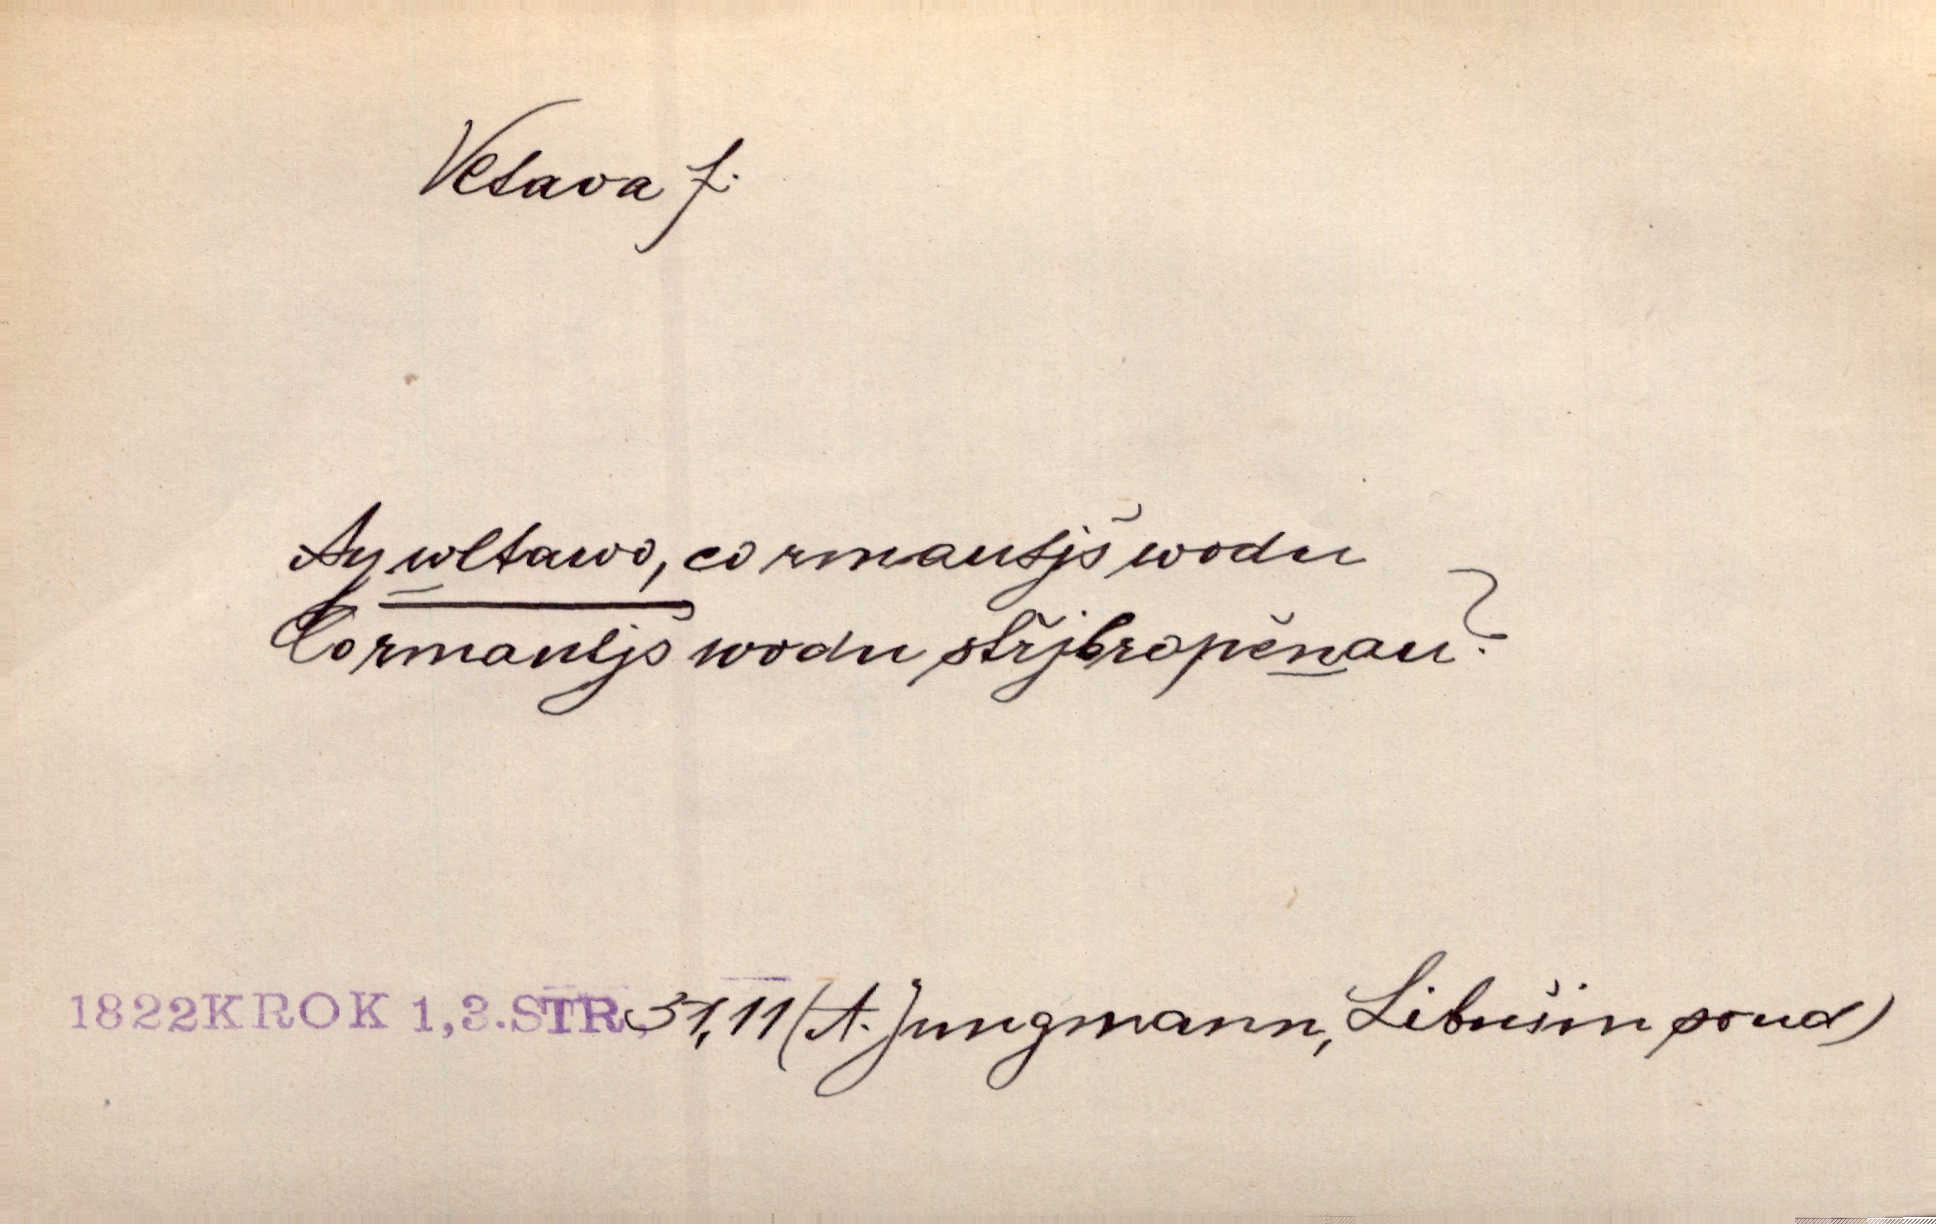 Vltava f.
Ay wltawo, co rmautjš wodu
Co rmautjš wodu střjbropěnau?
1822 KROK 1,3. STR. 51,11 (A. Jungmann, Libušin soud)